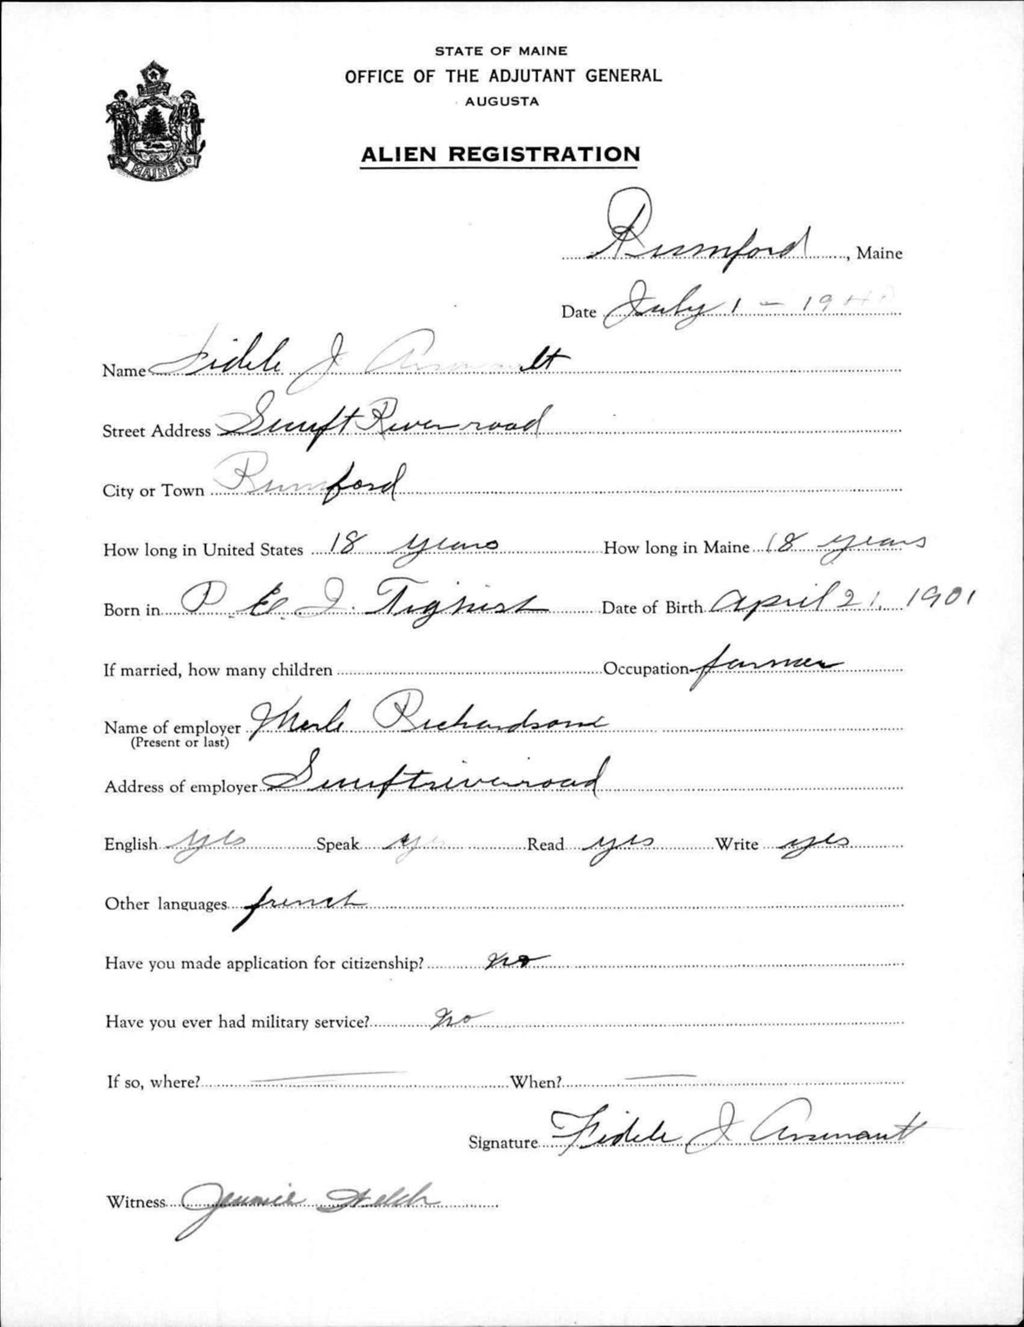 STATE OF MAINE
OFFICE OF THE ADJUTANT GENERAL
AUGUSTA
ALIEN REGISTRATION
MAINE
Rumford, Maine
Date July 1 - 1940
Name Fidele J Arsenault
Street Address Swift River road
City or Town Rumford
How long in United States 18 years How long in Maine 18 years
Born in P. E. I. Tignish Date of Birth April 21, 1901
If married, how many children Occupation farmer
Name of employer Merle Richardson
(Present or last)
Address of employer Swiftriverroad
English yes Speak yes Read yes Write yes
Other languages french
Have you made application for citizenship? no
Have you ever had military service? no
If so, where? — When? —
Signature Fidele J Arsenault
Witness Welch